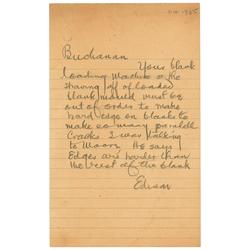 Buchanan
Your blank
Loading Machine or the
shaving off of loaded
blank mould must be
out of order to make
hard edge on blanks to
make so many parallel
Cracks I was talking
to Moore He says
Edges are harder than
the rest of the blank
Edison